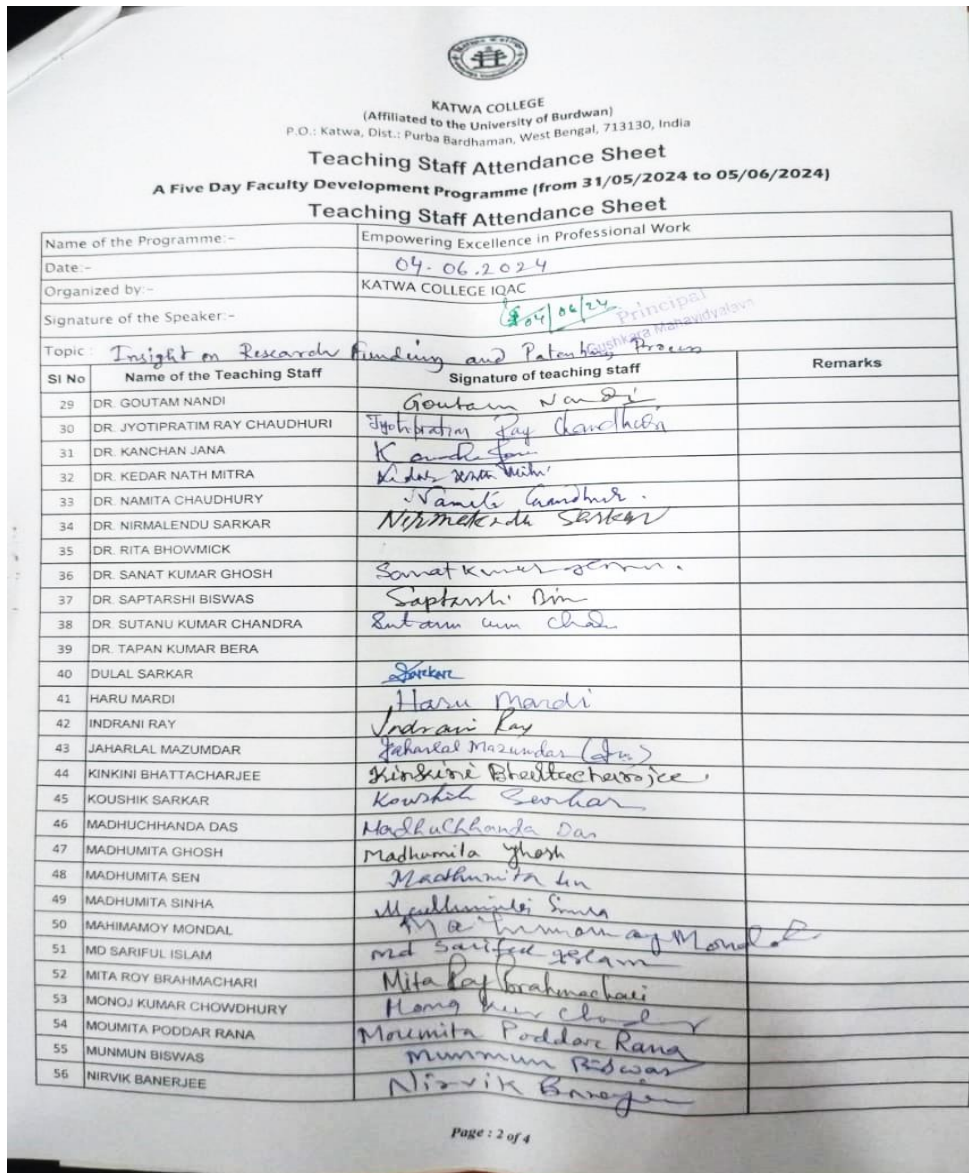 KATWA COLLEGE
(Affiliated to the University of Burdwan)
P.O.: Katwa, Dist.: Purba Bardhaman, West Bengal, 713130, India
Teaching Staff Attendance Sheet
A Five Day Faculty Development Programme (from 31/05/2024 to 05/06/2024)
Teaching Staff Attendance Sheet
Name of the Programme:- Empowering Excellence in Professional Work
Date:- 04.06.2024
Organized by:- KATWA COLLEGE IQAC
Signature of the Speaker:- 04/06/24 Principal
Gushkara Mahavidyalaya
Topic : Insight on Research Funding and Patenting Process
Sl No Name of the Teaching Staff Signature of teaching staff Remarks
29 DR. GOUTAM NANDI Goutam Nandi
30 DR. JYOTIPRATIM RAY CHAUDHURI Jyotipratim Ray Chaudhuri
31 DR. KANCHAN JANA
32 DR. KEDAR NATH MITRA
33 DR. NAMITA CHAUDHURY Namita
34 DR. NIRMALENDU SARKAR Nirmalendu Sarkar
35 DR. RITA BHOWMICK
36 DR. SANAT KUMAR GHOSH Sanat Kumar
37 DR. SAPTARSHI BISWAS Saptarshi
38 DR SUTANU KUMAR CHANDRA Sutanu
39 DR. TAPAN KUMAR BERA
40 DULAL SARKAR Sarkar
41 HARU MARDI Haru Mardi
42 INDRANI RAY Indrani Ray
43 JAHARLAL MAZUMDAR Jaharlal Mazumdar
44 KINKINI BHATTACHARJEE Kinkini Bhattacharjee
45 KOUSHIK SARKAR Koushik Sarkar
46 MADHUCHHANDA DAS Madhuchhanda Das
47 MADHUMITA GHOSH Madhumita Ghosh
48 MADHUMITA SEN Madhumita Sen
49 MADHUMITA SINHA
50 MAHIMAMOY MONDAL Mondal
51 MD SARIFUL ISLAM Md Sariful Islam
52 MITA ROY BRAHMACHARI Mita Roy Brahmachari
53 MONOJ KUMAR CHOWDHURY
54 MOUMITA PODDAR RANA Moumita Poddar Rana
55 MUNMUN BISWAS Munmun Biswas
56 NIRVIK BANERJEE Nirvik Banerjee
Page : 2 of 4